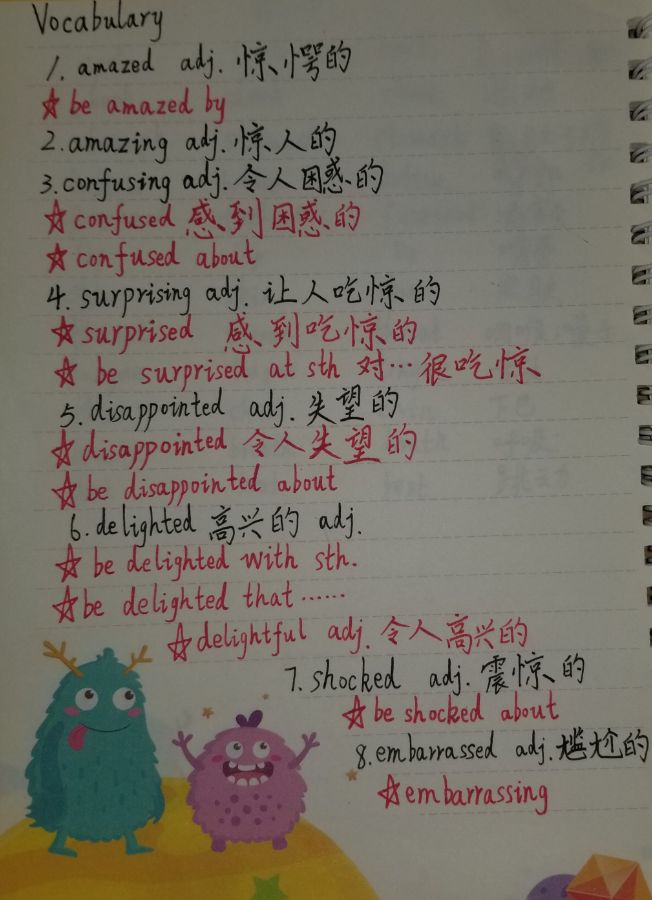 Vocabulary
1. amazed adj. 惊愕的
☆ be amazed by
2. amazing adj. 惊人的
3. confusing adj. 令人困惑的
☆ confused 感到困惑的
☆ confused about
4. surprising adj. 让人吃惊的
☆ surprised 感到吃惊的
☆ be surprised at sth 对…很吃惊
5. disappointed adj. 失望的
☆ disappointed 令人失望的
☆ be disappointed about
6. delighted 高兴的 adj.
☆ be delighted with sth.
☆ be delighted that……
☆ delightful adj. 令人高兴的
7. shocked adj. 震惊的
☆ be shocked about
8. embarrassed adj. 尴尬的
☆ embarrassing